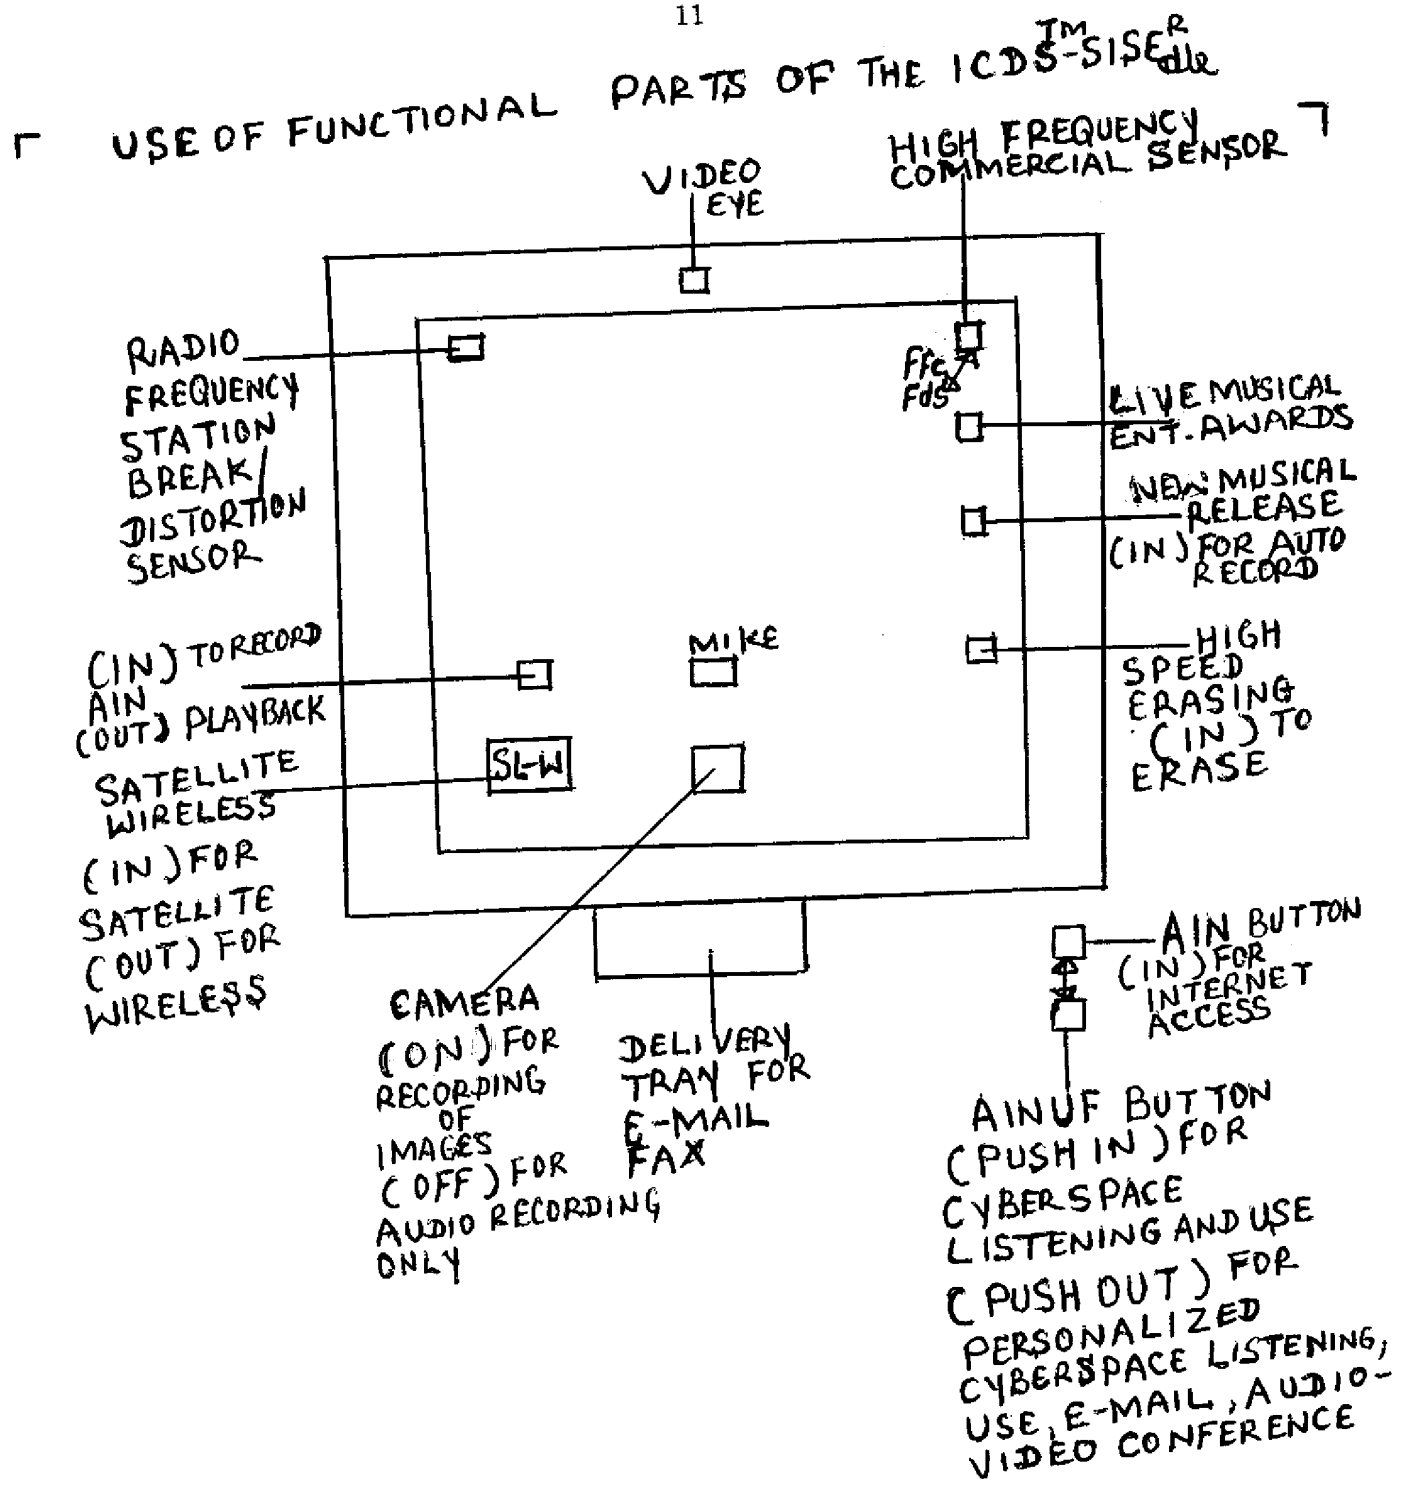 11
USE OF FUNCTIONAL PARTS OF THE ICDS™-SISER dle
HIGH FREQUENCY
COMMERCIAL SENSOR
VIDEO
EYE
RADIO
FREQUENCY
STATION
BREAK/
DISTORTION
SENSOR
Ffc
Fds
LIVE MUSICAL
ENT. AWARDS
NEW MUSICAL
RELEASE
(IN) FOR AUTO
RECORD
(IN) TO RECORD
AIN
(OUT) PLAYBACK
MIKE
HIGH
SPEED
ERASING
(IN) TO
ERASE
SATELLITE
WIRELESS
(IN) FOR
SATELLITE
(OUT) FOR
WIRELESS
SL-W
CAMERA
(ON) FOR
RECORDING
OF
IMAGES
(OFF) FOR
AUDIO RECORDING
ONLY
DELIVERY
TRAY FOR
E-MAIL
FAX
AIN BUTTON
(IN) FOR
INTERNET
ACCESS
AINUF BUTTON
(PUSH IN) FOR
CYBERSPACE
LISTENING AND USE
(PUSH OUT) FOR
PERSONALIZED
CYBERSPACE LISTENING,
USE, E-MAIL, AUDIO-
VIDEO CONFERENCE